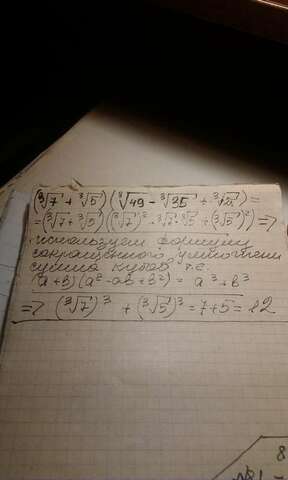 (∛7 + ∛5)(∛49 - ∛35 + ∛25) =
= (∛7 + ∛5)((∛7)² - ∛7·∛5 + (∛5)²) =>
используем формулу
сокращенного умножения
сумма кубов т.е.
(a+b)(a²-ab+b²) = a³+b³
=> (∛7)³ + (∛5)³ = 7+5 = 12
8